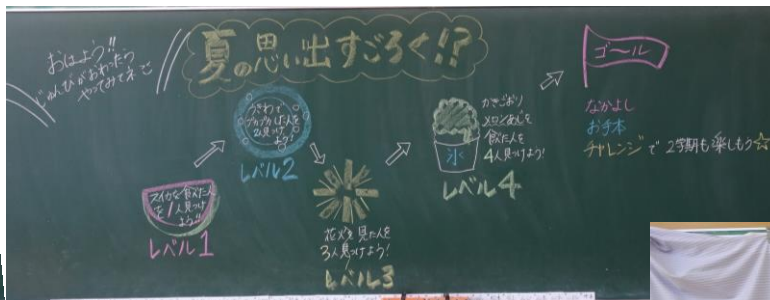 夏の思い出すごろく!?
おはよう!!
じゅんびがおわったら
やってみてネ
スイカを食べた人
を1人見つけ
よう!!
レベル1
うきわで
プカプカした人を
2人見つけ
よう!
レベル2
花火を見た人を
3人見つけよう!
レベル3
かきごおり
メロンあじを
食べた人を
4人見つけよう!
氷
レベル4
ゴール
なかよし
お手本
チャレンジで 2学期も楽しもう☆